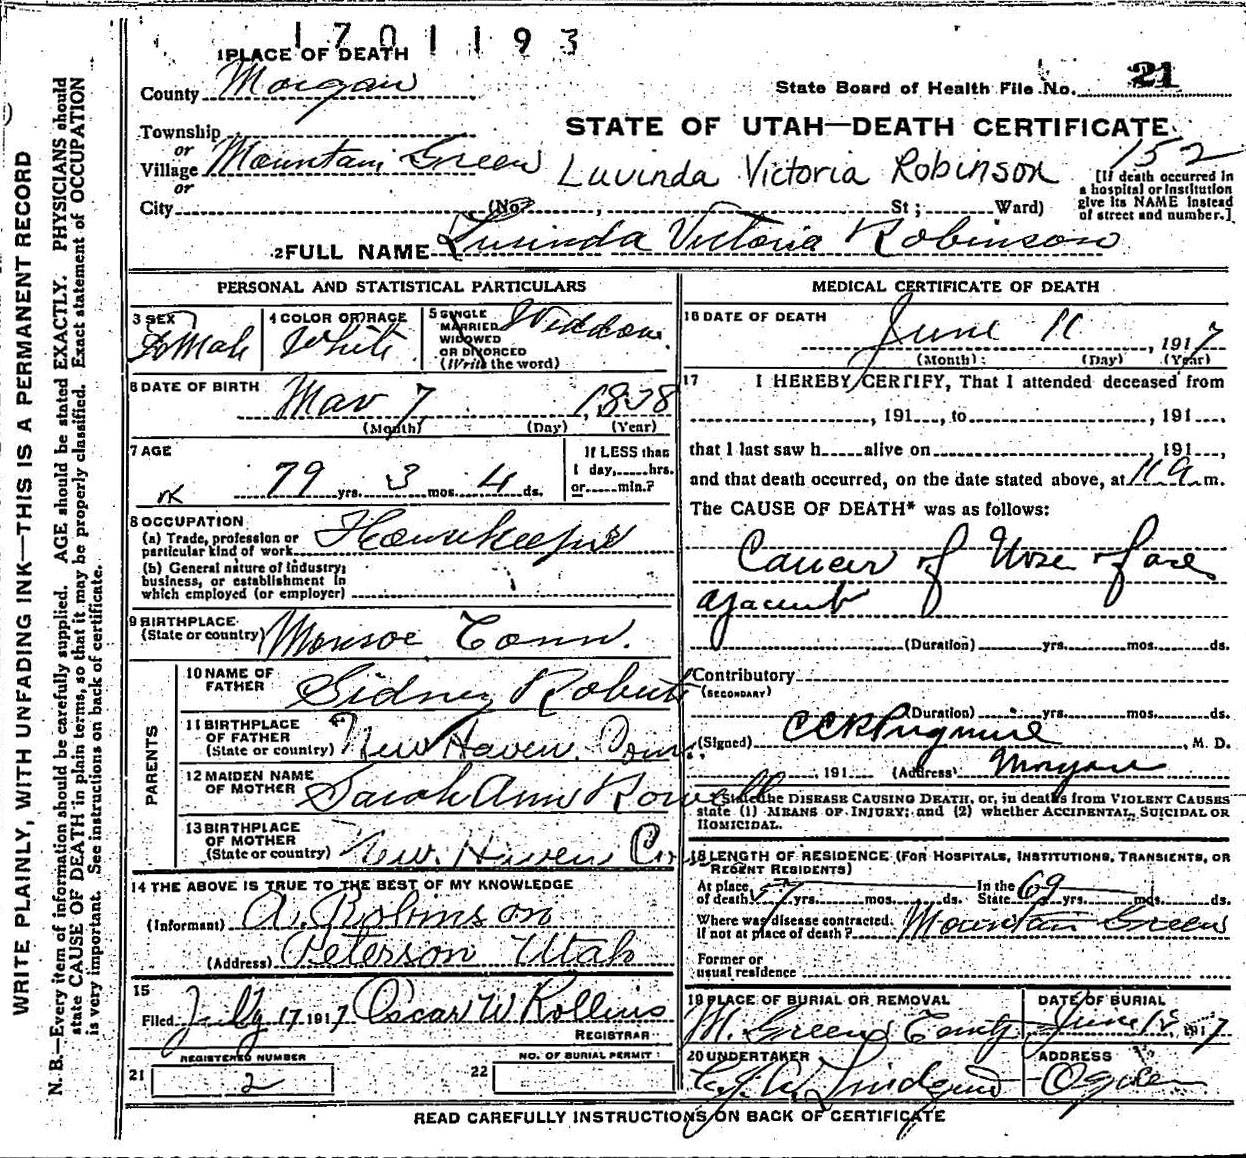 1701193
1 PLACE OF DEATH
County Morgan
State Board of Health File No. 21
Township
or
Village Mountain Green
or
City (No. , St; Ward)
STATE OF UTAH—DEATH CERTIFICATE
152
Luvinda Victoria Robinson
[If death occurred in
a hospital or institution
give its NAME instead
of street and number.]
2 FULL NAME Luvinda Victoria Robinson
PERSONAL AND STATISTICAL PARTICULARS
3 SEX
4 COLOR OR RACE White
5 SINGLE
MARRIED
WIDOWED
OR DIVORCED
(Write the word)
Widdow
6 DATE OF BIRTH Mar 7, 1838
(Month) (Day) (Year)
7 AGE
79 yrs. 3 mos. 4 ds.
If LESS than
1 day, hrs.
or min.?
8 OCCUPATION
(a) Trade, profession or
particular kind of work Housekeeping
(b) General nature of industry,
business, or establishment in
which employed (or employer)
9 BIRTHPLACE
(State or country) Monroe Conn.
PARENTS
10 NAME OF
FATHER Sidney Roberts
11 BIRTHPLACE
OF FATHER
(State or country) New Haven. Conn.
12 MAIDEN NAME
OF MOTHER Sarah Ann Rowell
13 BIRTHPLACE
OF MOTHER
(State or country) New. Haven Co
14 THE ABOVE IS TRUE TO THE BEST OF MY KNOWLEDGE
(Informant) A. Robinson
(Address) Peterson Utah
15
Filed July 17 1917 Oscar W Rollins
REGISTRAR
REGISTERED NUMBER
21 2
NO. OF BURIAL PERMIT
22
MEDICAL CERTIFICATE OF DEATH
16 DATE OF DEATH
June 11, 1917
(Month) (Day) (Year)
17 I HEREBY CERTIFY, That I attended deceased from
, 191 , to , 191 ,
that I last saw h alive on , 191 ,
and that death occurred, on the date stated above, at 11 a m.
The CAUSE OF DEATH* was as follows:
Cancer of Nose & face
ajacent
(Duration) yrs. mos. ds.
Contributory
(SECONDARY)
(Duration) yrs. mos. ds.
(Signed) , M. D.
, 191 (Address) Morgan
*State the DISEASE CAUSING DEATH, or, in deaths from VIOLENT CAUSES
state (1) MEANS OF INJURY; and (2) whether ACCIDENTAL, SUICIDAL OR
HOMICIDAL.
18 LENGTH OF RESIDENCE (FOR HOSPITALS, INSTITUTIONS, TRANSIENTS, OR
RECENT RESIDENTS)
At place
of death yrs. mos. ds. In the
State 69 yrs. mos. ds.
Where was disease contracted,
If not at place of death? Mountain Green
Former or
usual residence
19 PLACE OF BURIAL OR REMOVAL
DATE OF BURIAL
June 1917
20 UNDERTAKER
ADDRESS
Ogden
READ CAREFULLY INSTRUCTIONS ON BACK OF CERTIFICATE
WRITE PLAINLY, WITH UNFADING INK—THIS IS A PERMANENT RECORD
N. B.—Every item of information should be carefully supplied. AGE should be stated EXACTLY. PHYSICIANS should
state CAUSE OF DEATH in plain terms, so that it may be properly classified. Exact statement of OCCUPATION
is very important. See instructions on back of certificate.